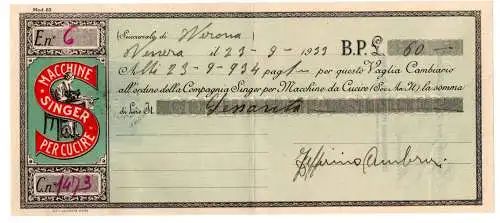 Mod. 63
E. n° 6
Succursale di Verona
il 23-9-1933 B.P.£. 60
Alli 23-9-934 pag per questo Vaglia Cambiario
all'ordine della Compagnia Singer per Macchine da Cucire (Soc. An. It.) la somma
di Lire It. Sessanta
MACCHINE
SINGER
PER CUCIRE
C. n° 1473